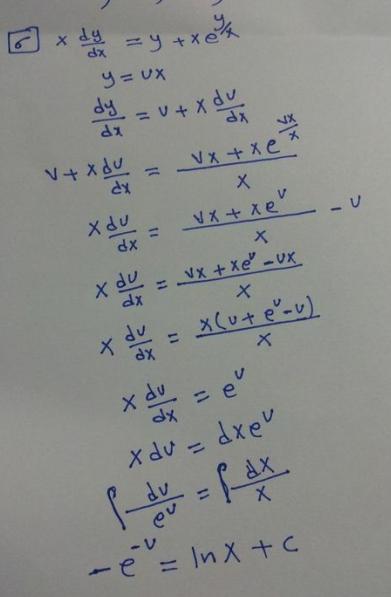 6 x dy/dx = y + xe^(y/x)
y = vx
dy/dx = v + x dv/dx
v + x dv/dx = (vx + xe^(vx/x))/x
x dv/dx = (vx + xe^v)/x - v
x dv/dx = (vx + xe^v - vx)/x
x dv/dx = x(v + e^v - v)/x
x dv/dx = e^v
x dv = dx e^v
∫ dv/e^v = ∫ dx/x
-e^-v = ln x + c